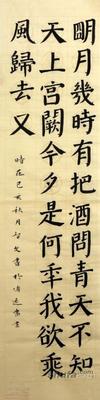 明月幾時有把酒問青天不知
天上宮闕今夕是何秊我欲乘
風歸去又
時在己亥秋月